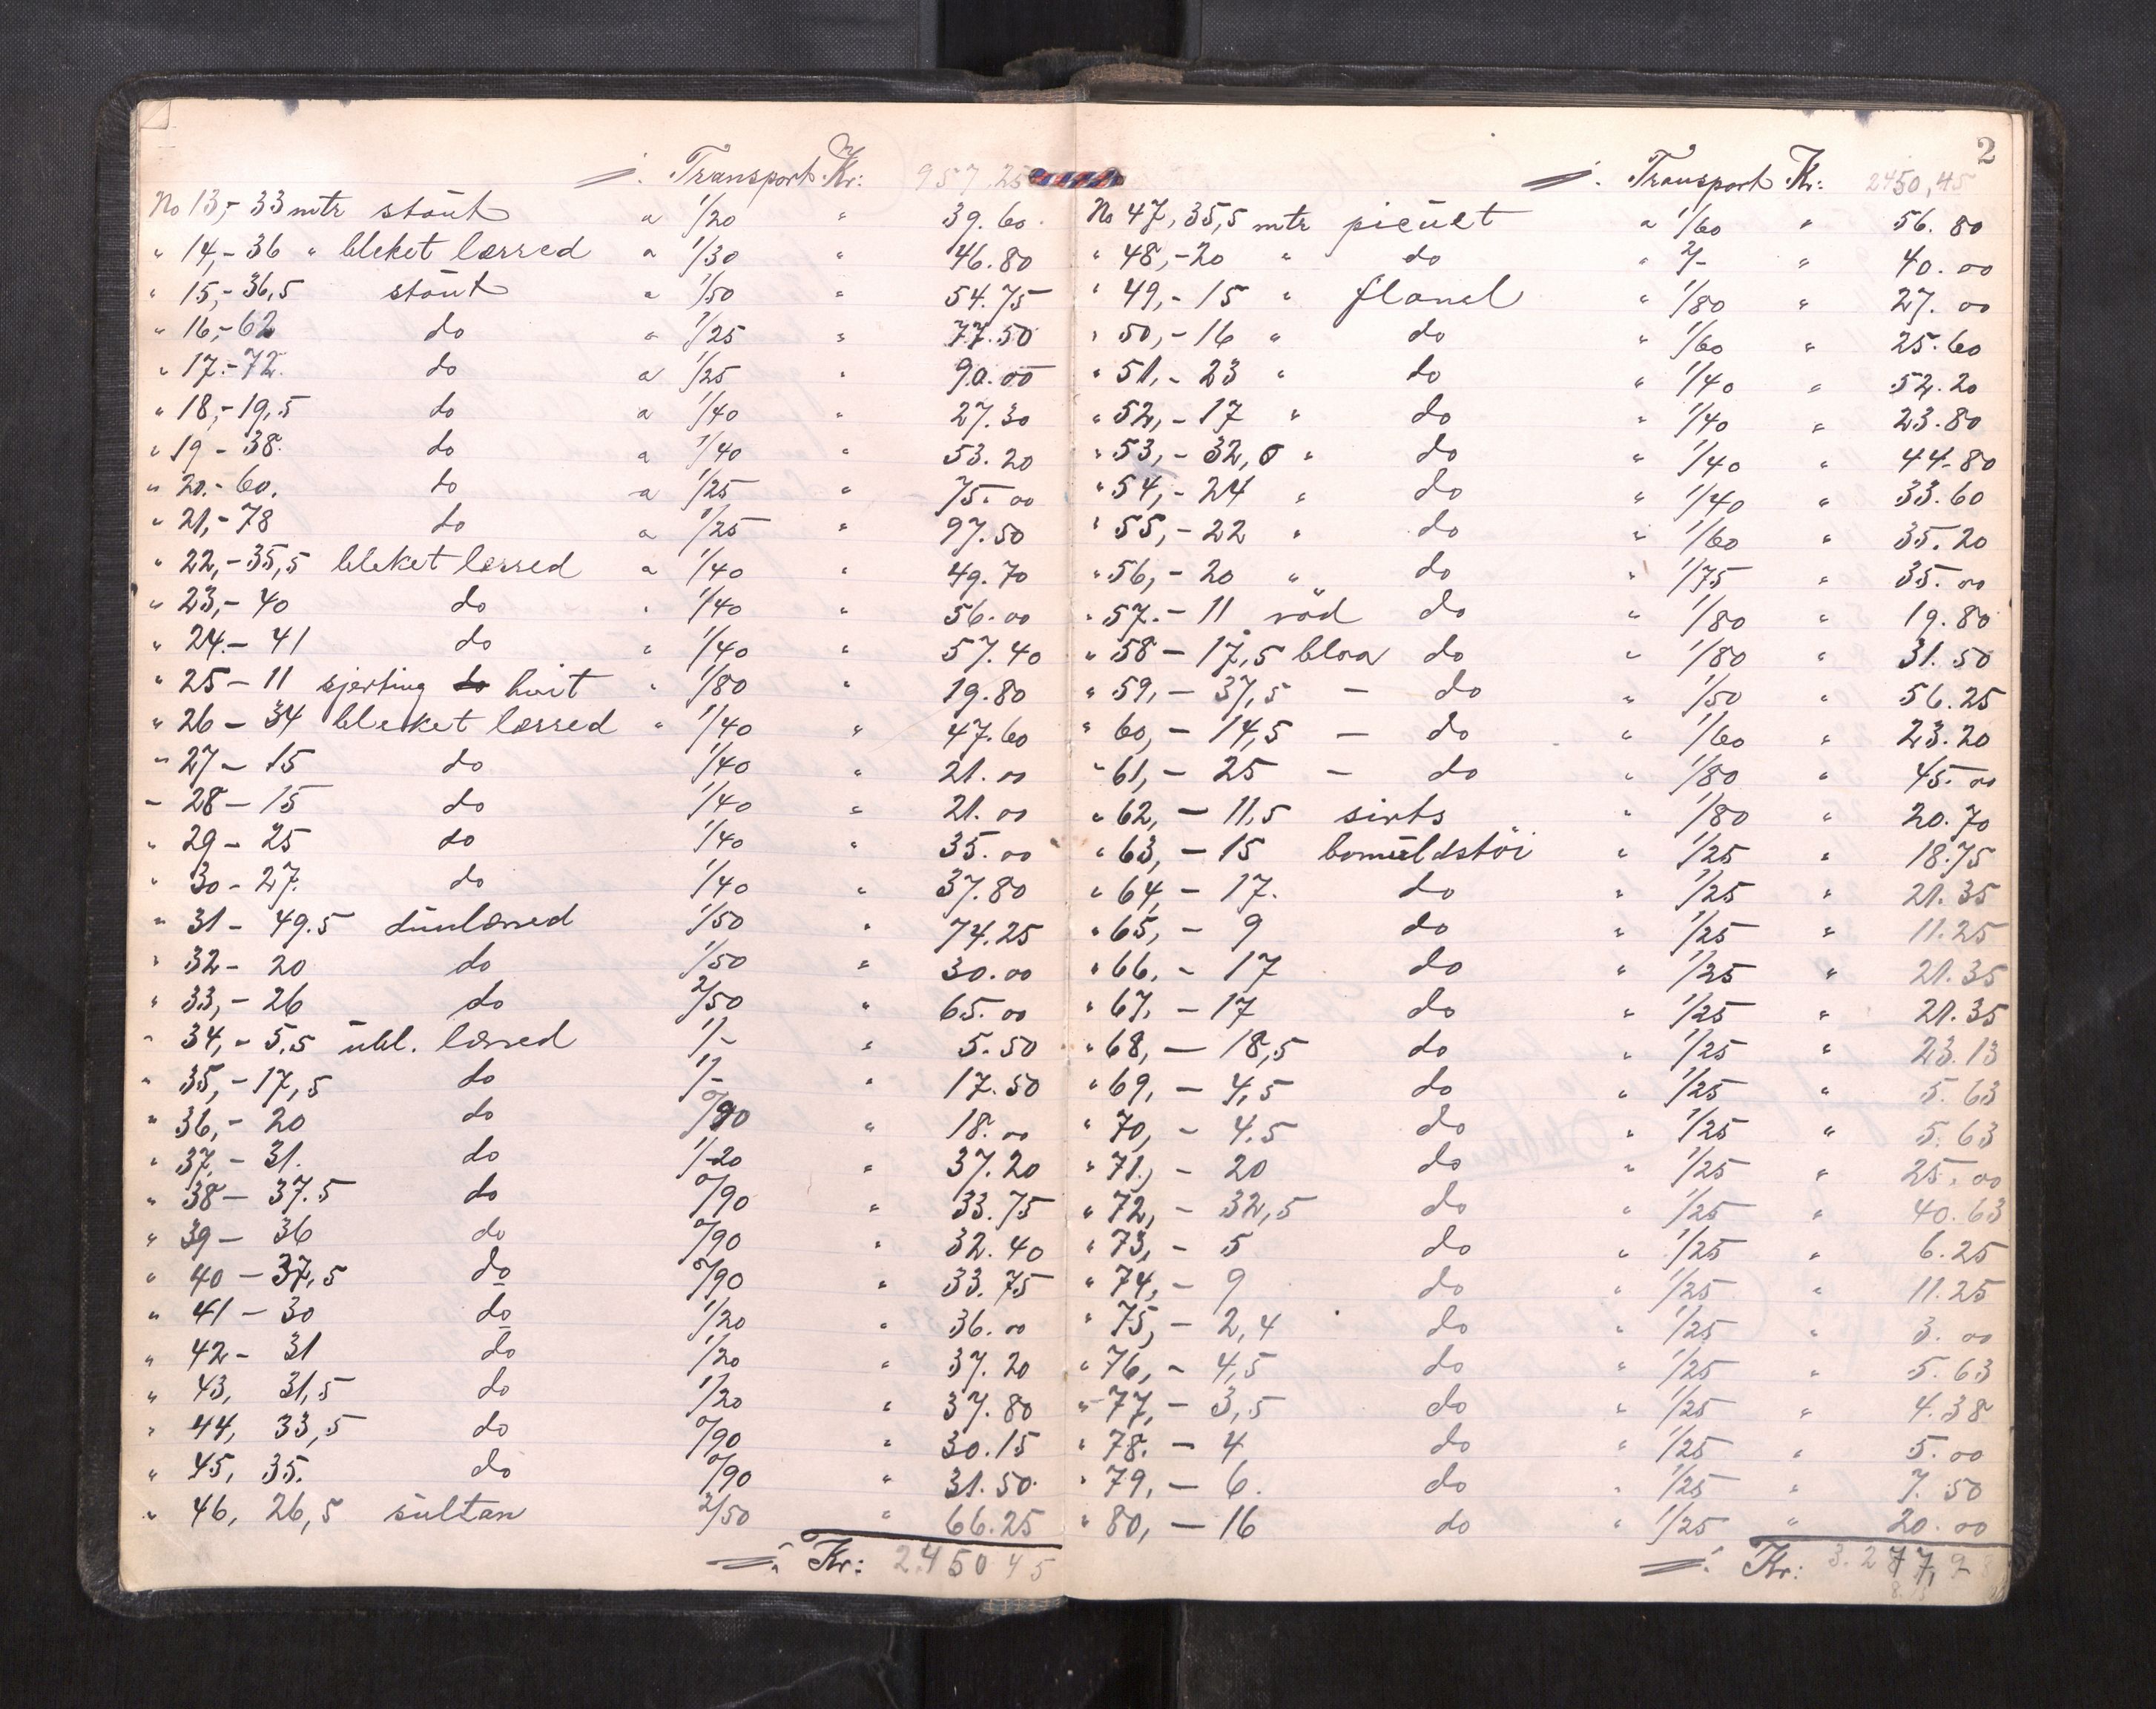 Transport Kr: 957.25
No 13,- 33 mtr stout a 1/20 " 39.60
" 14,- 36 " bleket lærred a 1/30 " 46.80
" 15,- 36,5 stout a 1/50 " 54.75
" 16,- 62 do " 1/25 " 77.50
" 17.- 72. do a 1/25 " 90.00
" 18,- 19,5 do a 1/40 " 27.30
" 19 - 38. do a 1/40 " 53.20
" 20.- 60. do a 1/25 " 75.00
" 21,- 78 do a 1/25 " 97.50
" 22,- 35,5 bleket lærred a 1/40 " 49.70
" 23,- 40 do " 1/40 " 56.00
" 24.- 41 do " 1/40 " 57.40
" 25 - 11 sjerting hvit " 1/80 " 19.80
" 26 - 34 bleket lærred " 1/40 " 47.60
" 27 - 15 do 1/40 " 21.00
" 28 - 15 do 1/40 " 21.00
" 29 - 25 do 1/40 " 35.00
" 30 - 27. do 1/40 " 37.80
" 31 - 49.5 dunlærred 1/50 " 74.25
" 32 - 20 do 1/50 " 30.00
" 33,- 26 do 2/50 " 65.00
" 34,- 5,5 ubl. lærred 1/- " 5.50
" 35,- 17,5 do 1/- " 17.50
" 36,- 20 do 0/90 " 18.00
" 37,- 31. do 1/20 " 37.20
" 38 - 37.5 do 0/90 " 33.75
" 39 - 36 do 0/90 " 32.40
" 40 - 37,5 do 0/90 " 33.75
" 41 - 30 do 1/20 " 36.00
" 42 - 31 do 1/20 " 37.20
" 43, 31,5 do 1/20 " 37.80
" 44, 33,5 do 0/90 " 30.15
" 45, 35. do 0/90 " 31.50
" 46, 26,5 sultan 2/50 " 66.25
Kr: 2.450 45
2
Transport Kr: 2450,45
No 47, 35,5 mtr picuet a 1/60 " 56.80
" 48,- 20 " do " 2/- " 40.00
" 49,- 15 " flanel " 1/80 " 27.00
" 50,- 16 " do " 1/60 " 25.60
" 51,- 23 " do " 1/40 " 52.20
" 52,- 17 " do " 1/40 " 23.80
" 53,- 32,0 " do " 1/40 " 44.80
" 54,- 24 " do " 1/40 " 33.60
" 55,- 22 " do " 1/60 " 35.20
" 56,- 20 " do " 1/75 " 35.00
" 57.- 11 röd do " 1/80 " 19.80
" 58 - 17,5 blaa do " 1/80 " 31.50
" 59,- 37,5 - do " 1/50 " 56.25
" 60,- 14,5 - do " 1/60 " 23.20
" 61,- 25 - do " 1/80 " 45.00
" 62,- 11,5 sirts " 1/80 " 20.70
" 63,- 15 bomuldstöi " 1/25 " 18.75
" 64,- 17. do " 1/25 " 21.35
" 65,- 9 do " 1/25 " 11.25
" 66,- 17 do " 1/25 " 21.35
" 67,- 17 do " 1/25 " 21.35
" 68,- 18,5 do " 1/25 " 23.13
" 69,- 4,5 do " 1/25 " 5.63
" 70,- 4.5 do " 1/25 " 5.63
" 71,- 20 do " 1/25 " 25.00
" 72,- 32,5 do " 1/25 " 40.63
" 73,- 5 do " 1/25 " 6.25
" 74,- 9 do " 1/25 " 11.25
" 75,- 2,4 do " 1/25 " 3.00
" 76,- 4,5 do " 1/25 " 5.63
" 77,- 3,5 do " 1/25 " 4.38
" 78.- 4 do " 1/25 " 5.00
" 79,- 6. do " 1/25 " 7.50
" 80,- 16 do " 1/25 " 20.00
Kr: